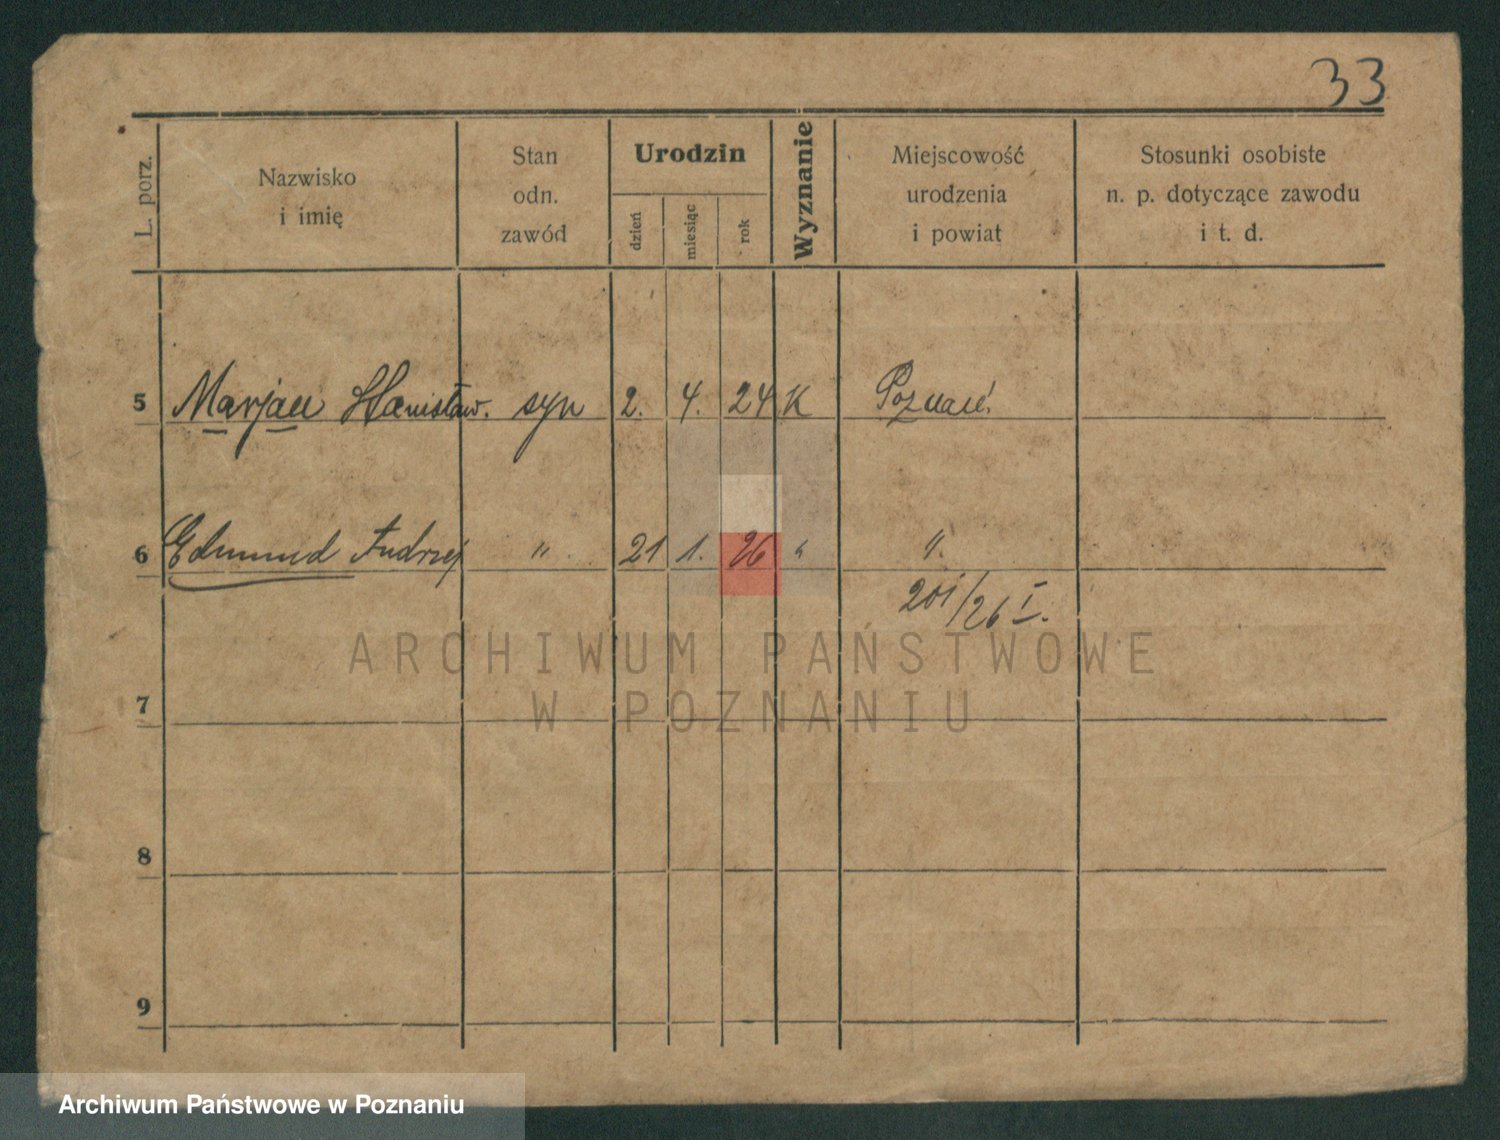 33
L. porz.
Nazwisko
i imię
Stan
odn.
zawód
Urodzin
dzień
miesiąc
rok
Wyznanie
Miejscowość
urodzenia
i powiat
Stosunki osobiste
n. p. dotyczące zawodu
i t. d.
5 Marjan Stanisław. syn 2. 4. 24 K Poznań.
6 Edmund Andrzej " . 21 1. 26 " ".
201/26 I.
ARCHIWUM PAŃSTWOWE
W POZNANIU
7
8
9
Archiwum Państwowe w Poznaniu